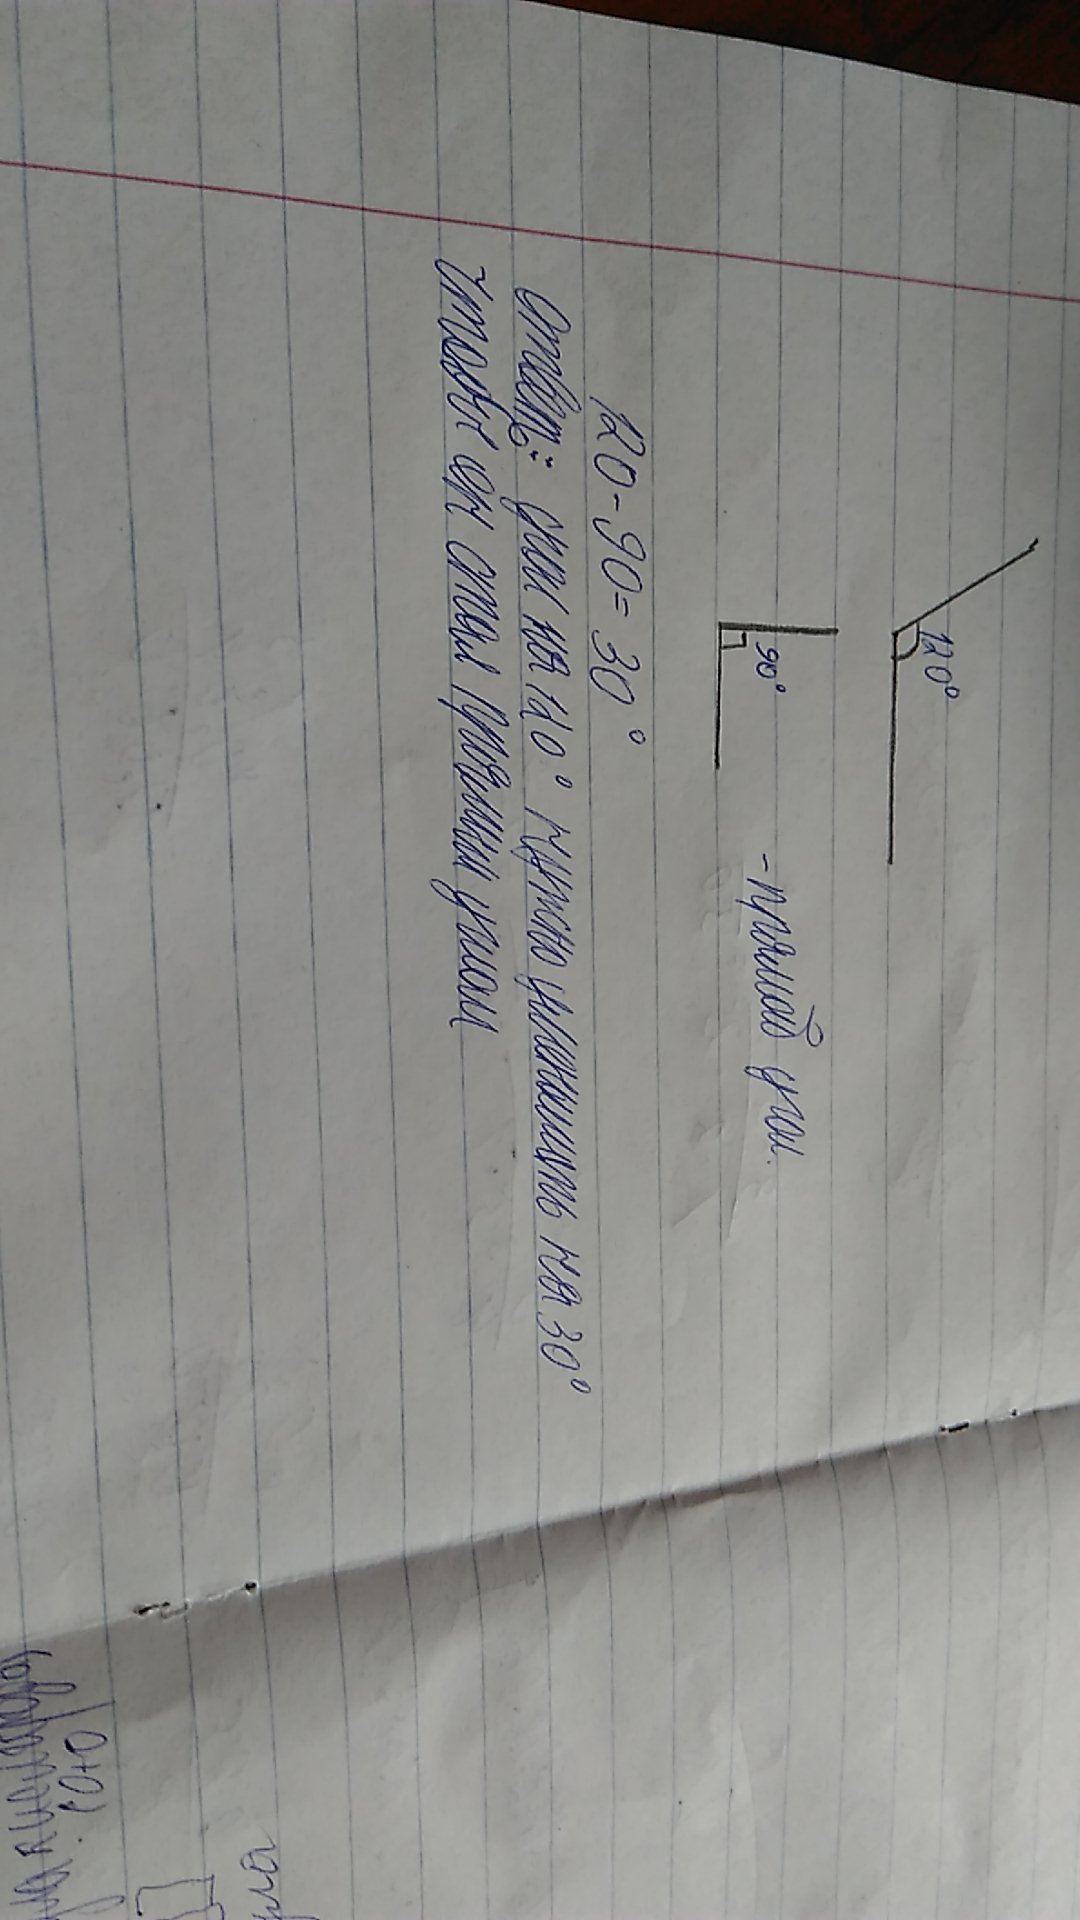 120°
90°
-прямой угол.
120-90=30°
Ответ: угол на 120° нужно уменьшить на 30°
чтобы он стал прямым углом